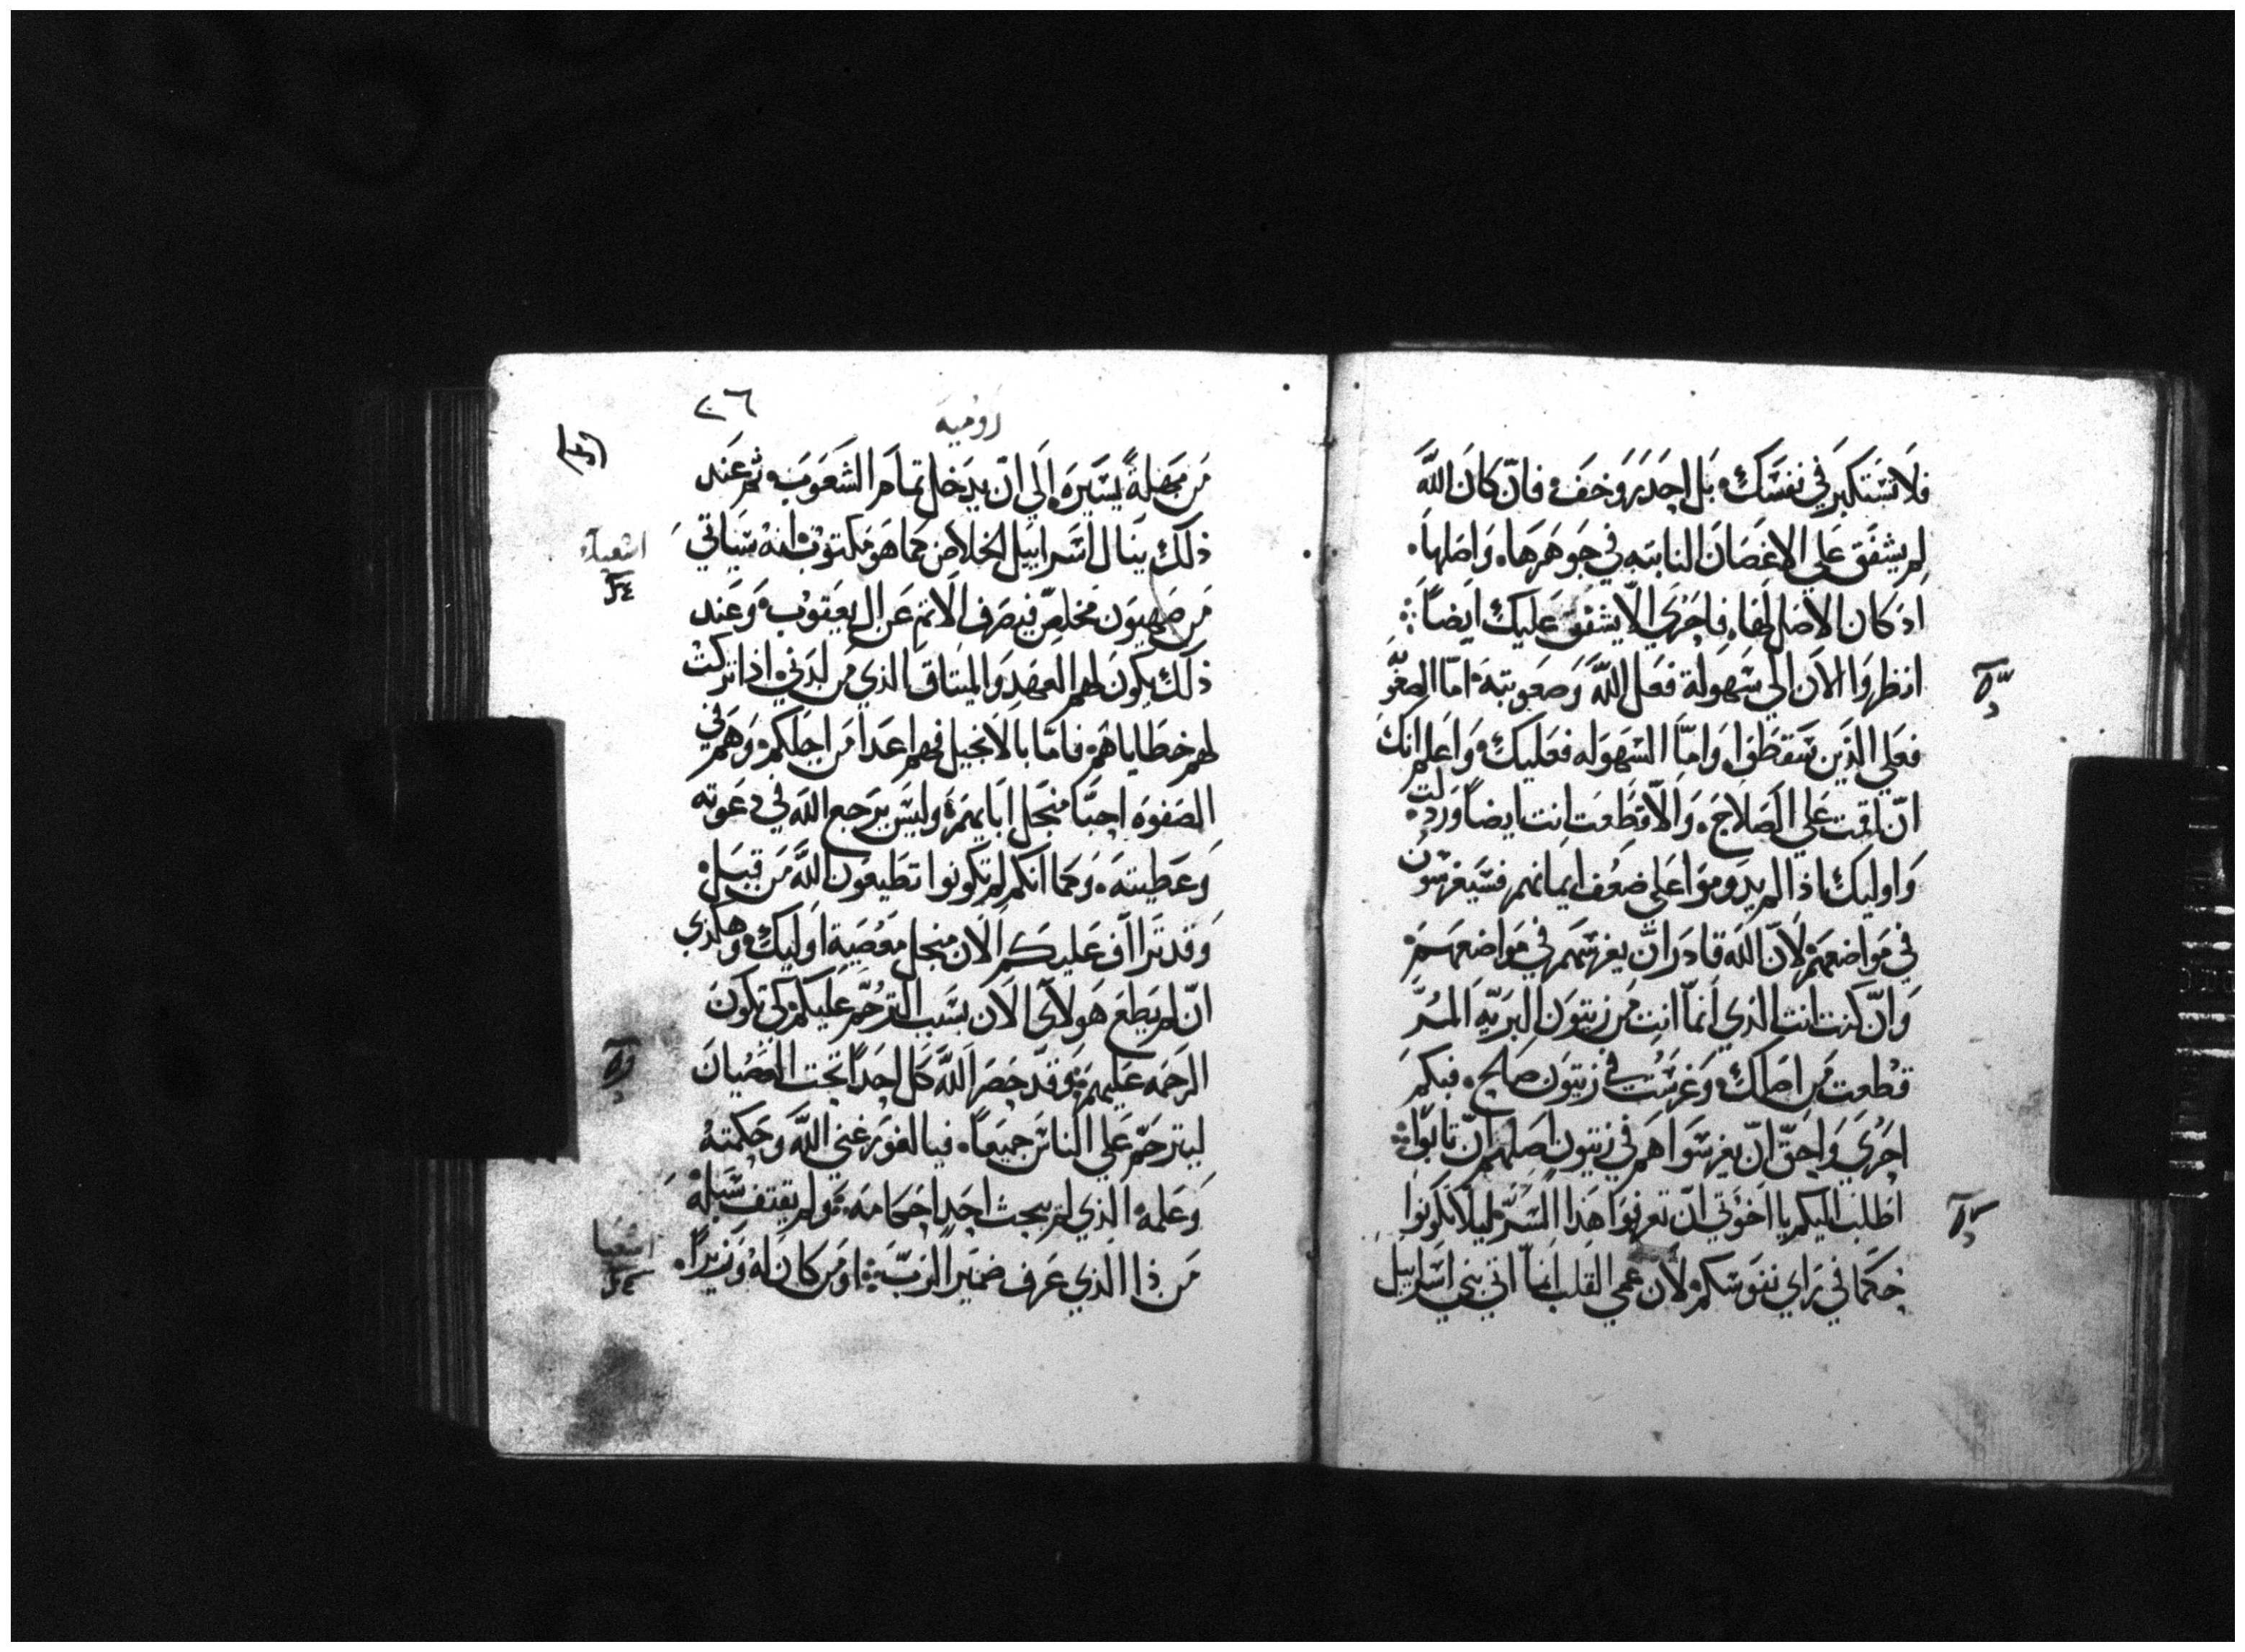 فلا تستكبر في نفسك بل احدر وخف فان كان الله
لم يشفق على الاغصان النابته في جوهرها واصلها
اذ كان الاصل لها فاحري الا يشفق عليك ايضا
انظروا الان الي سهولة فعل الله وصعوبته اما الصعوبه
فعلي الذين سقطوا واما السهوله فعليك واعلم انك
ان اقمت علي الصلاح والا قطعت انت ايضا وردلت
واوليك اذا لم يدوموا علي ضعف ايمانهم فسيغرسون
في مواضعهم لان الله قادر ان يغرسهم في مواضعهم
وان كنت انت الذي انما انت من زيتون البريه المر
قطعت من اصلك وغرست في زيتون صالح فبكم
احري واحق ان يغرسوا هم في زيتون اصلهم ان تابوا
اطلب اليكم يا اخوتي ان تعرفوا هذا السر ليلا تكونوا
حكما في راي نفوسكم لان عمي القلب انما اتي بني اسراييل
٢٦
روميه
من مهلة يسيره الي ان يدخل تمام الشعوب ثم عند
ذلك ينال اسراييل الخلاص كما هو مكتوب انه سياتي
من صهيون مخلص فيصرف الاثم عن ال يعقوب وعند
ذلك يكون لهم العهد والميثاق الذي من لدني اذا تركت
لهم خطاياهم فاما بالانجيل فهم اعدا من اجلكم وهم في
الصفوه احبا منجل ابايهم وليس يرجع الله في دعوته
وعطيته وكما انكم لم تكونوا تطيعون الله من قبل
وقد تراف عليكم الان منجل معصية اوليك وهكذي
ان لم يطع هولاي الان بسبب الترحم عليكم لكي تكون
الرحمه عليهم وقد حصر الله كل احدا تحت العصيان
ليترحم علي الناس جميعا فيا لغور غني الله وحكمته
وعلمه الذي لم يبحث احدا احكامه ولم يقتف سبله
من ذا الذي عرف ضمير الرب او من كان له وزيرا
اشعيا
اشعيا